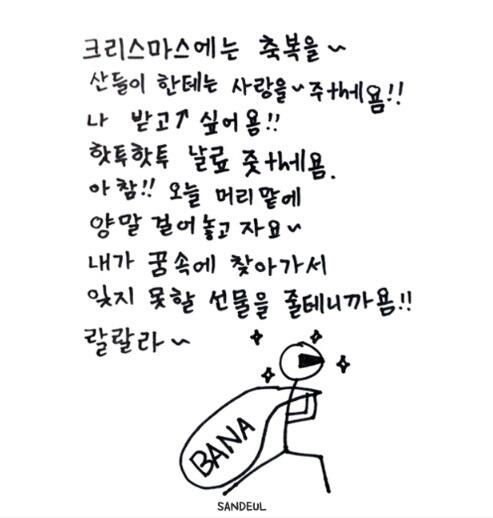 크리스마스에는 축복을~
산들이 한테는 사랑을~주세욤!!
나 받고↑ 싶어욤!!
핫투핫투 날료 줏세욤.
아 참!! 오늘 머리맡에
양말 걸어놓고 자요~
내가 꿈속에 찾아가서
잊지 못할 선물을 줄테니까욤!!
랄랄라~
BANA
SANDEUL